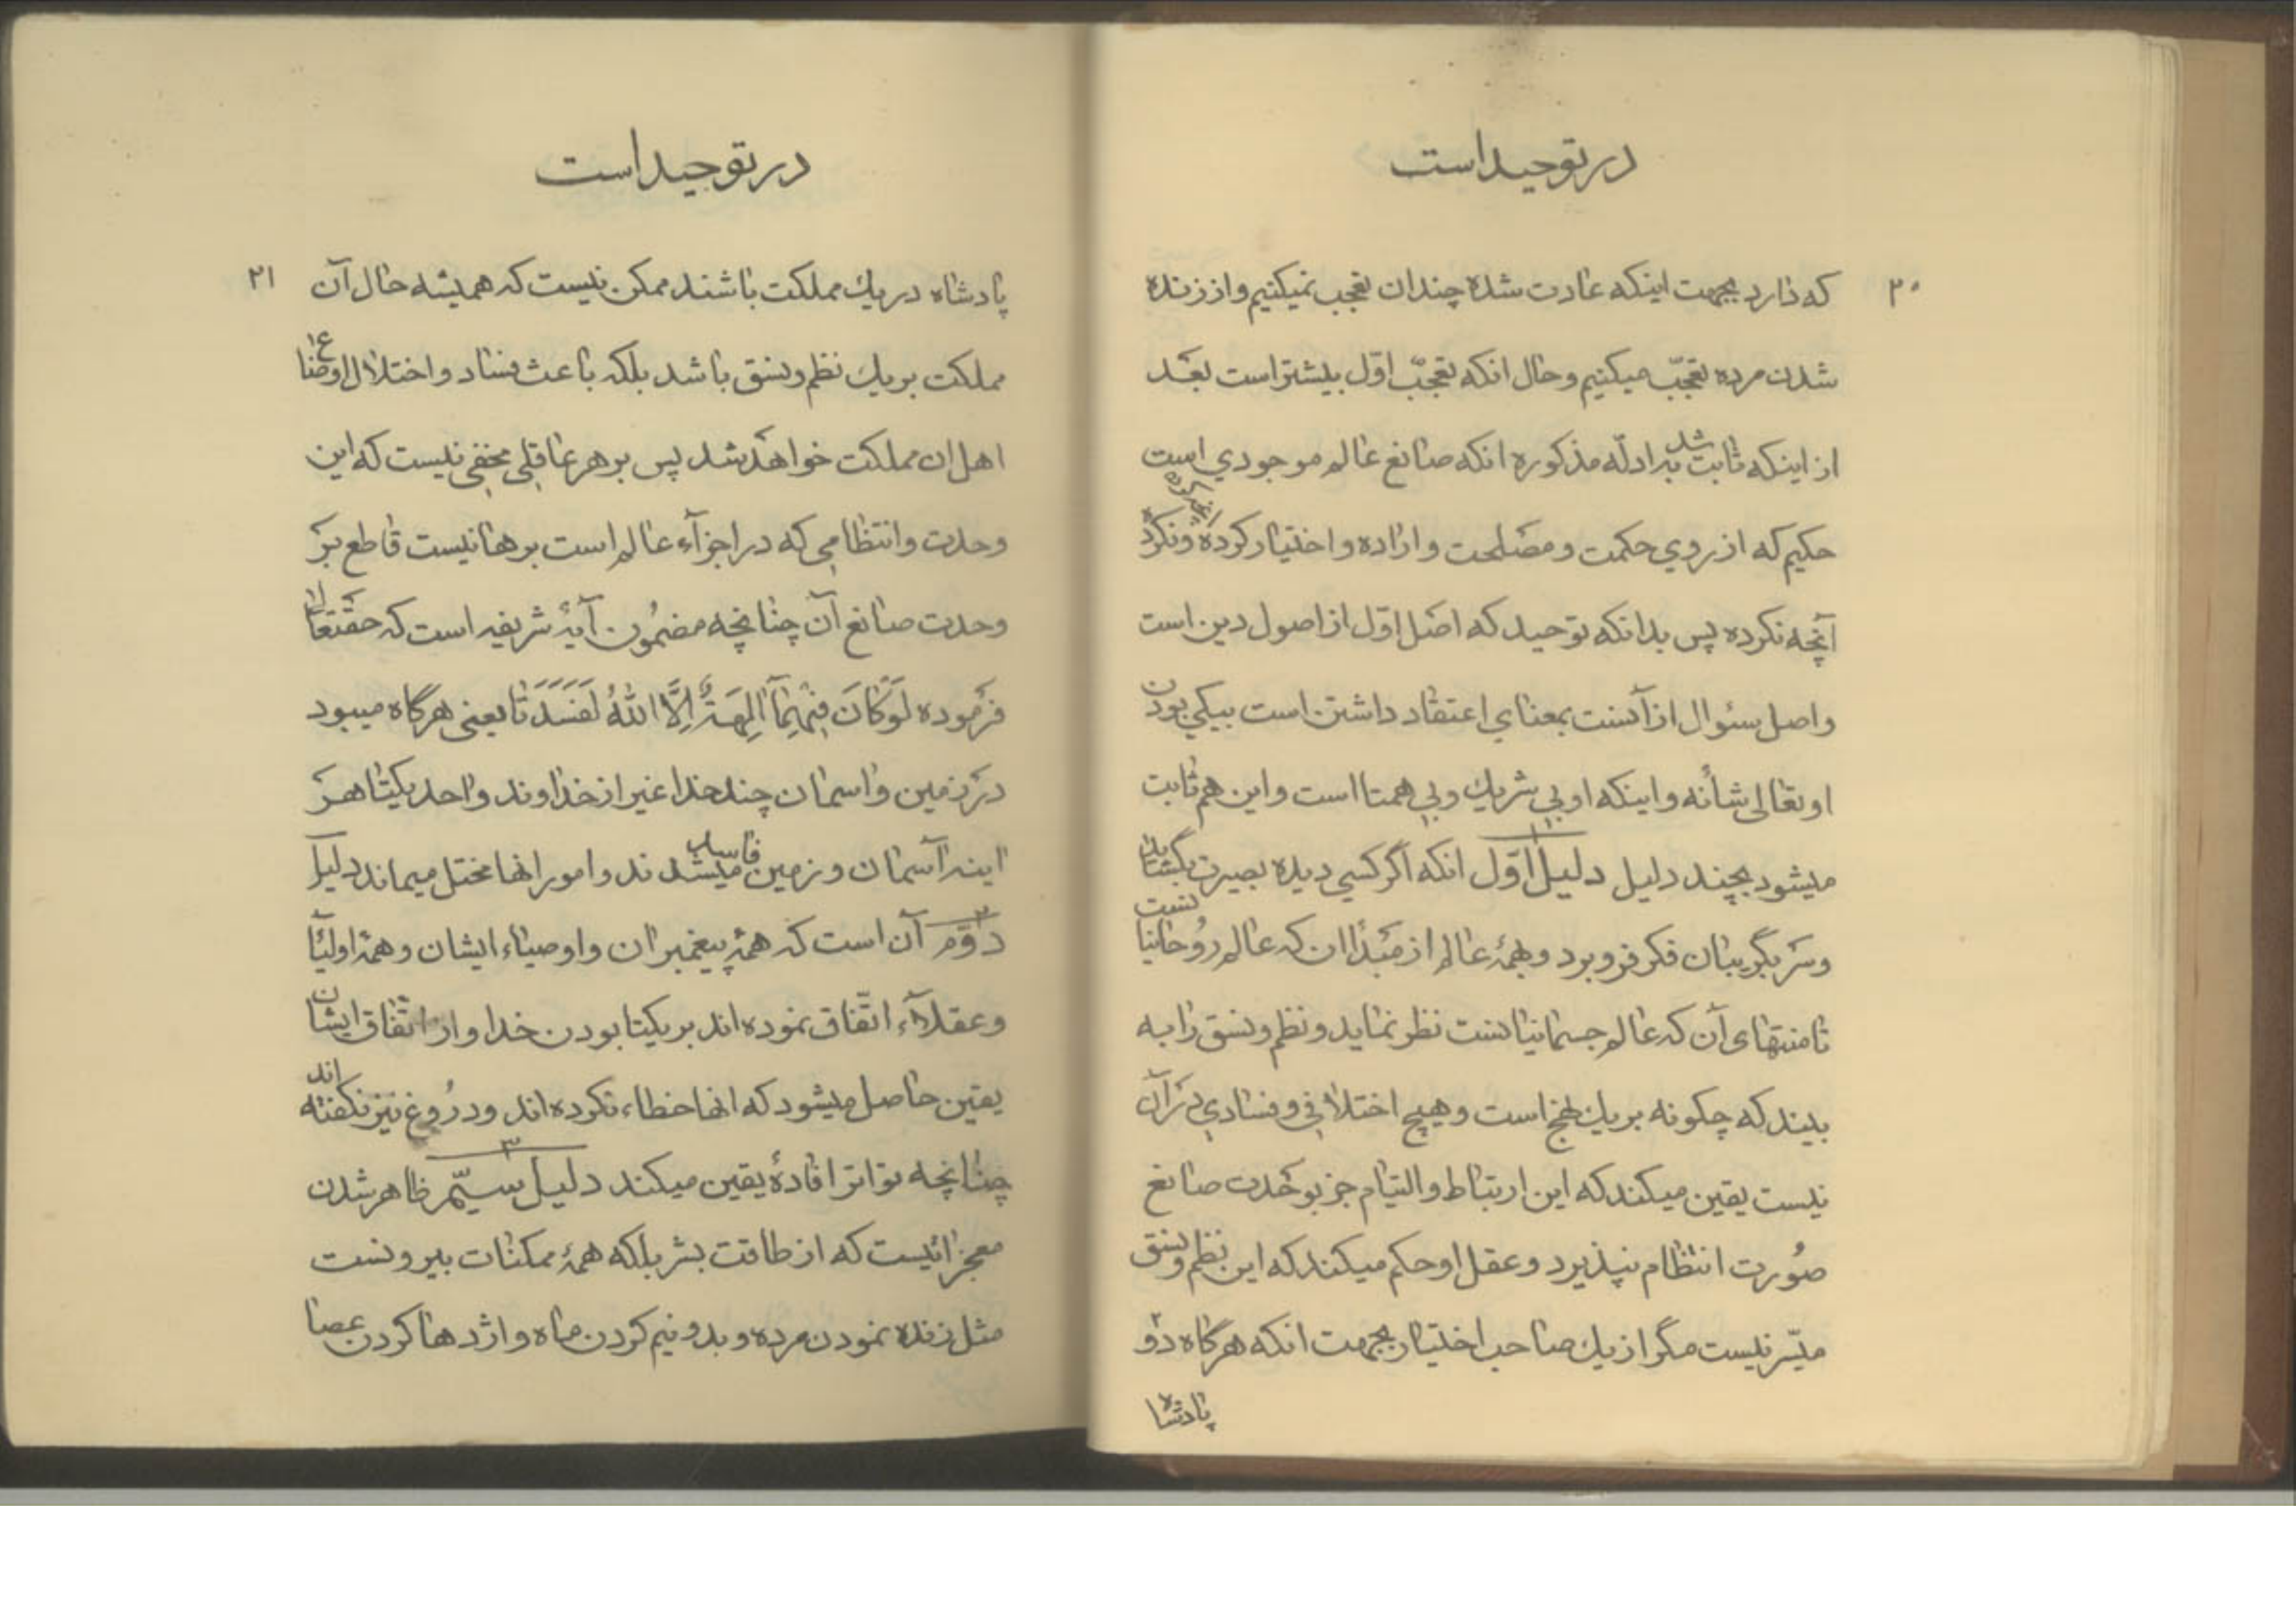 در توحید است
۲۰
که دارد بجهت اینکه عادت شده چندان تعجب نمیکنیم و از زنده
شدن مرده تعجّب میکنیم و حال انکه تعجّب اوّل بیشتر است بعد
از اینکه ثابت شد بادلّه مذکوره انکه صانع عالم موجودی است
حکیم که از روی حکمت و مصلحت و اراده و اختیار کرده انچه کرده و نکرده
آنچه نکرده پس بدانکه توحید که اصل اوّل از اصول دین است
و اصل سئوال از آنست بمعنای اعتقاد داشتن است بیکی بودن
او تعالی شأنه و اینکه او بی شریك و بی همتا است و این هم ثابت
میشود بچند دلیل دلیل اوّل انکه اگر کسی دیده بصیرت بگشاید
و سر بگریبان فکر فرو برد و بهمۀ عالم از مبدأ ان که عالم روحانیانست
تا منتهای آن که عالم جسمانیانست نظر نماید و نظم و نسق را به
بیند که چگونه بر یك نهج است و هیچ اختلافی و فسادی در آن
نیست یقین میکند که این ارتباط و التیام جز بوحدت صانع
صُورت انتظام نپذیرد و عقل او حکم میکند که این نظم و نسق
میّسر نیست مگر از یك صاحب اختیار بجهت انکه هرگاه دو
پادشاه
در توحید است
۲۱
پادشاه در یك مملکت باشند ممکن نیست که همیشه حال آن
مملکت بر یك نظم و نسق باشد بلکه باعث فساد و اختلال اوضاع
اهل ان مملکت خواهد شد پس بر هر عاقلی مخفی نیست که این
وحدت و انتظامی که در اجزآء عالم است برهانیست قاطع بر
وحدت صانع آن چنانچه مضمُون آیۀ شریفه است که حقتعالی
فرموده لَوْ كَانَ فِيْهِمَآ اٰلِهَةٌ اِلَّا اللّٰهُ لَفَسَدَتَا یعنی هرگاه میبود
در زمین و اسمان چند خدا غیر از خداوند واحد یکتا هر
اینه آسمان و زمین فاسد میشدند و امور انها مختل میماند دلیل
دوّم آن است که همۀ پیغمبران و اوصیاء ایشان و همۀ اولیا
و عقلآء اتّفاق نموده اند بر یکتا بودن خدا و از اتّفاق ایشان
یقین حاصل میشود که انها خطاء نکرده اند و درُوغ نیز نگفته اند
چنانچه تواتر افادۀ یقین میکند دلیل سیّم ظاهر شدن
معجزاتیست که از طاقت بشر بلکه همۀ ممکنات بیرونست
مثل زنده نمودن مرده و بدو نیم کردن ماه و اژدها کردن عصا